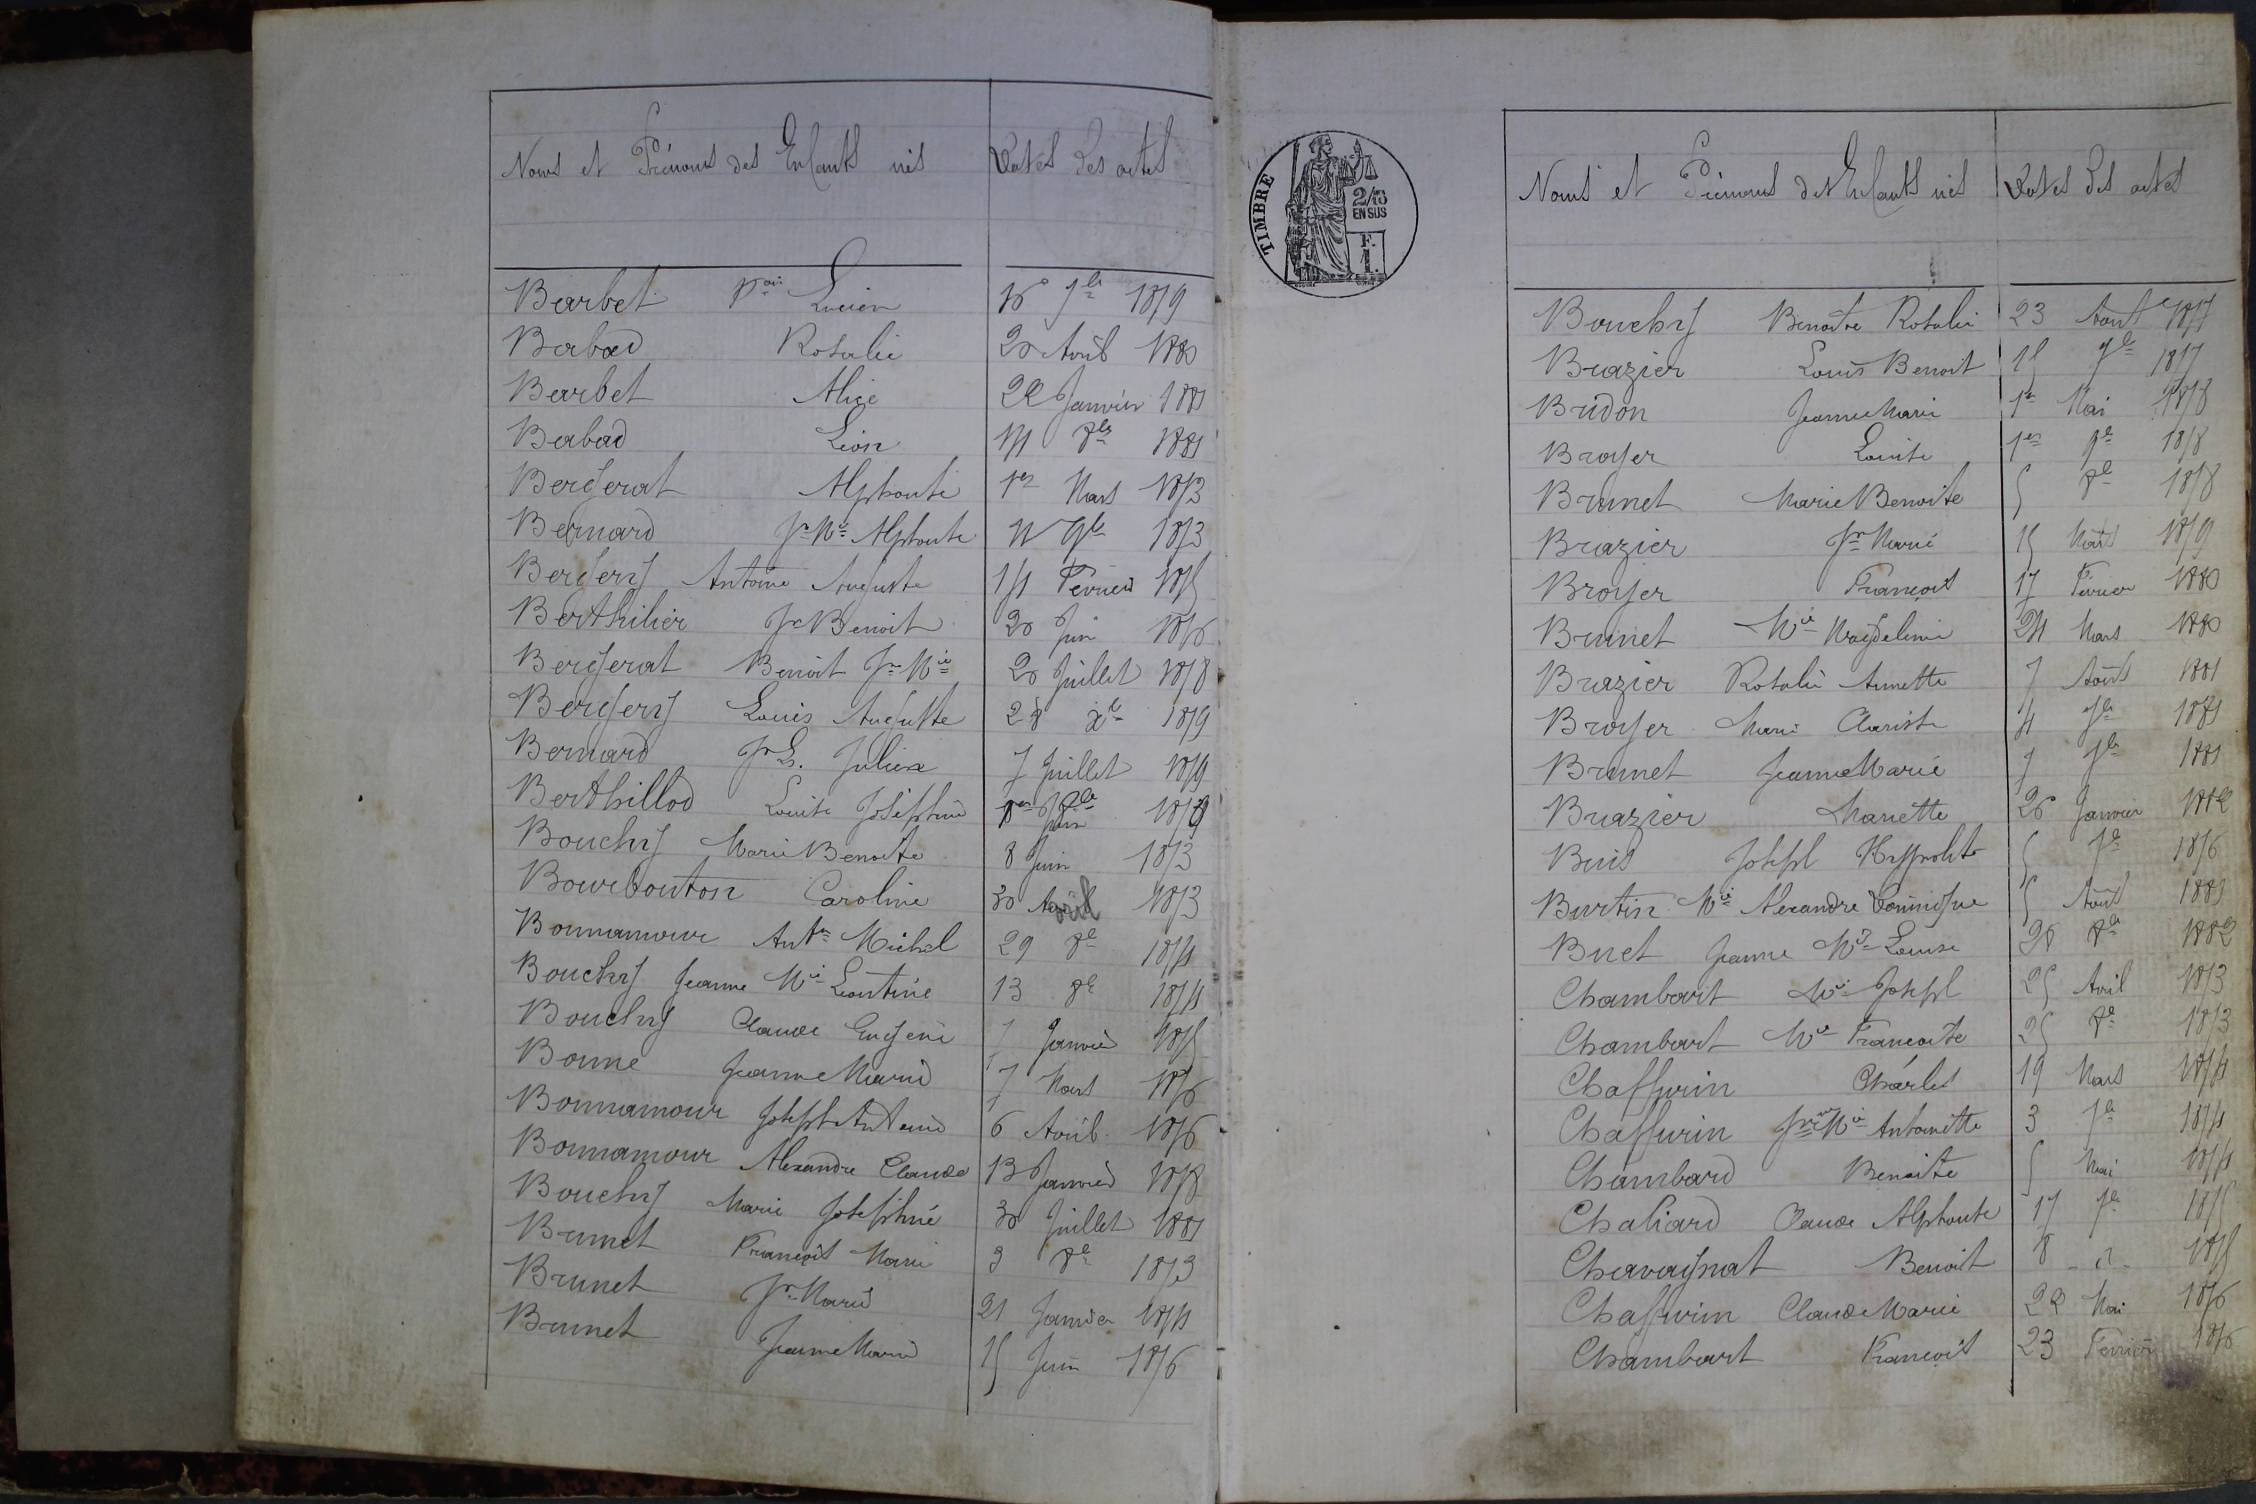 Noms et Prénoms des Enfants nés Dates des actes
Barbet Fois Lucien 1879
Babad Rosalie 20 Avril 1880
Barbet Alice 22 Janvier 1881
Babad Léon 14 8bre 1881
Bergerat Alphonse 1er Mars 1873
Bernard Jn Me Alphonse 9bre 1873
Bergery Antoine Auguste 14 Février 1875
Berthilier Je Benoit 20 Juin 1876
Bergerat Benoit Jn Mie 20 Juillet 1878
Bergery Louis Auguste 28 Xbre 1879
Bernard Jn L. Julien 7 Juillet 1879
Berthillod Louise Joséphine
Bouchy Marie Benoite 8 Juin 1873
Bourbouton Caroline 30 Avril 1873
Bonnamour Antne Michel 29 8bre 1874
Bouchy Jeanne Mie Léontine 13 8bre 1874
Bouchy Claude Eugène 7 Janvier 1875
Bonne Jeanne Marie 7 Mars 1876
Bonnamour Joseph Antoine 6 Avril 1876
Bonnamour Alexandre Claude 13 Janvier 1878
Bouchy Marie Joséphine 30 Juillet 1881
Brunet François Marie 3 8bre 1873
Brunet Jn Marie 21 Janvier 1874
Brunet Jeanne Marie 15 Juin 1876
TIMBRE
2/10
EN SUS
F.
1.
Noms et Prénoms des Enfants nés Dates des actes
Bouchy Benoite Rosalie 23 Aout 1877
Brazier Louis Benoit 15 1877
Bridon Jeanne Marie 1er Mai 1878
Broyer Louise 1er 1878
Brunet Marie Benoite 5 8bre 1878
Brazier Jn Marie 15 Mars 1879
Broyer François 17 Février 1880
Brunet Mie Magdeleine 24 Mars 1880
Brazier Rosalie Annette 7 Aout 1881
Broyer Marie Clarisse 4 7bre 1881
Brunet Jeanne Marie 7 7bre 1881
Brazier Mariette 26 Janvier 1882
Buis Joseph Hyppolite 5 7bre 1876
Burtin Mie Alexandre Dominique 5 Aout 1881
Buet Jeanne Mie Louise 28 8bre 1882
Chambart Mie Joseph 25 Avril 1873
Chambart Mie Françoise 25 8bre 1873
Chaffurin Charles 19 Mars 1874
Chaffurin Jne Mie Antoinette 3 7bre 1874
Chambard Benoite 5 Mai 1874
Chaliard Claude Alphonse 17 7bre 1875
Chavagnat Benoit 8 - d - 1875
Chaffurin Claude Marie 22 Mai 1876
Chambart François 23 Février 1876